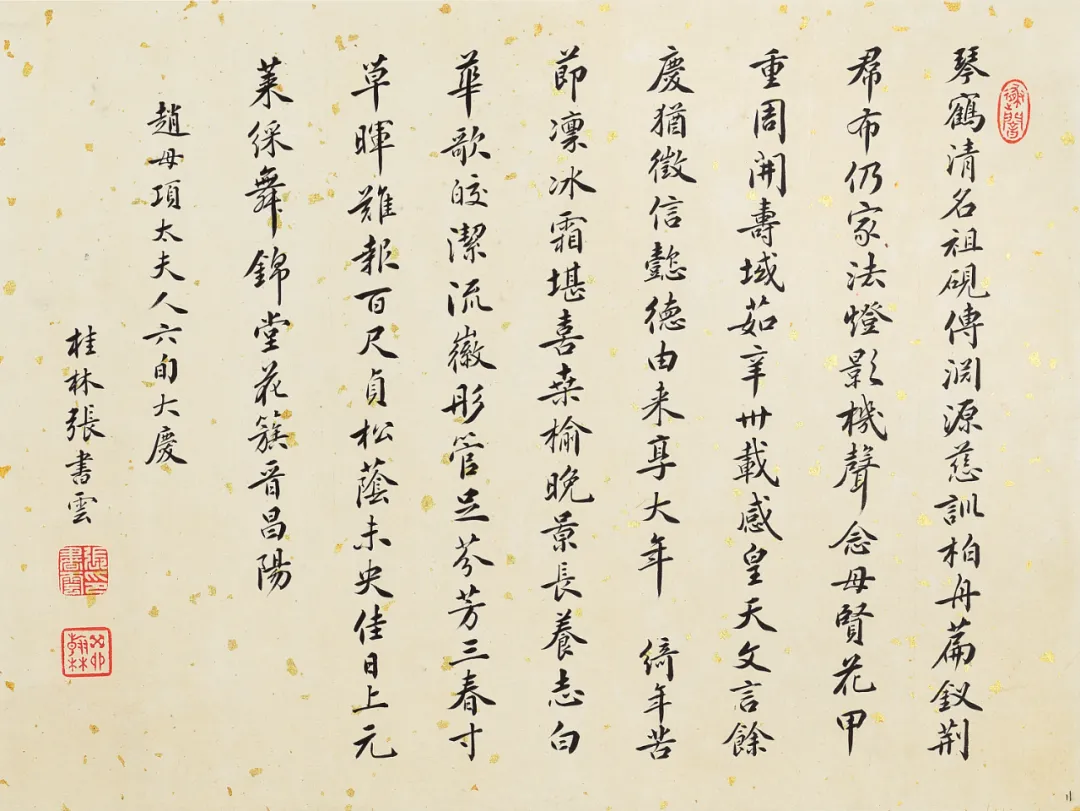 琴鶴清名祖硯傳淵源慈訓柏舟篇釵荆
帬布仍家法燈影機聲念母賢花甲
重周開壽域茹辛卅載感皇天文言餘
慶猶徵信懿德由来享大年 綺年苦
節凜冰霜堪喜桑榆晚景長養志白
華歌皎潔流徽彤管足芬芳三春寸
草暉難報百尺貞松蔭未央佳日上元
萊綵舞錦堂花簇晋昌陽
趙母項太夫人六旬大慶
桂林張書雲
張書雲印
癸卯翰林